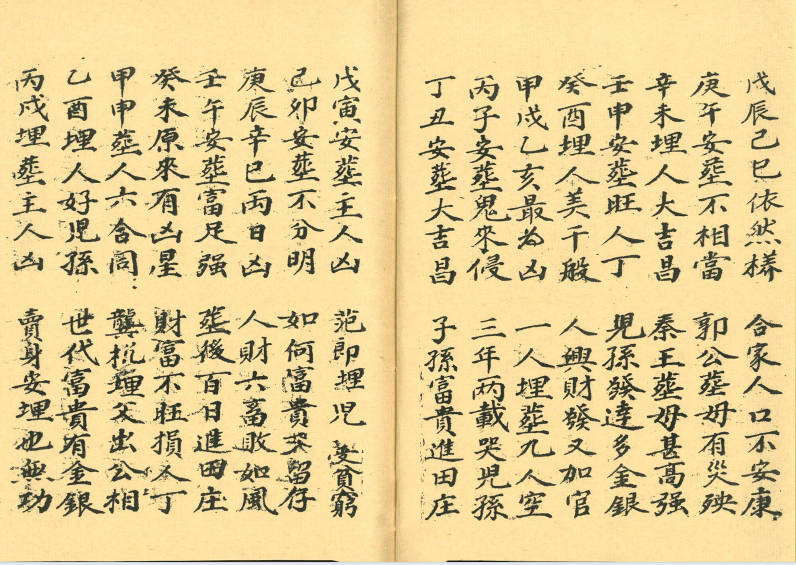 戊辰己巳依然样 合家人口不安康
庚午安葬不相當 郭公葬母有災殃
辛未埋人大吉昌 秦王葬母甚髙强
壬申安葬旺人丁 兒孫發達多金銀
癸酉埋人美千般 人興財發又加官
甲戌乙亥最为凶 一人埋葬九人空
丙子安葬鬼來侵 三年两載哭兒孫
丁丑安葬大吉昌 子孫富貴進田庄
戊寅安葬主人凶 范郎埋児受貧窮
己卯安葬不分明 如何富貴留存
庚辰辛巳两日凶 人財六畜敗如風
壬午安葬富足强 葬後百日進田庄
癸未原來有凶星 財富不旺損人丁
甲申葬人六合同 龔埋父出公相
乙酉埋人好児孫 世代富貴有金銀
丙戌埋葬主人凶 賣身安埋也無功